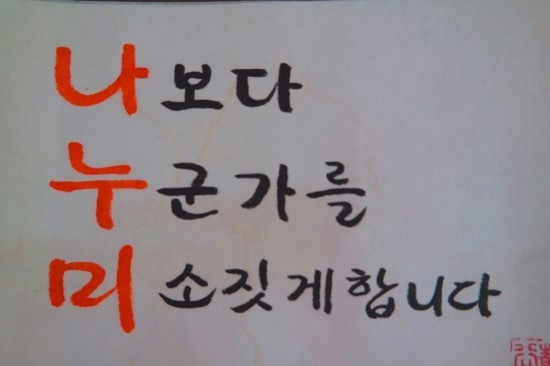 나보다
누군가를
미소짓게합니다